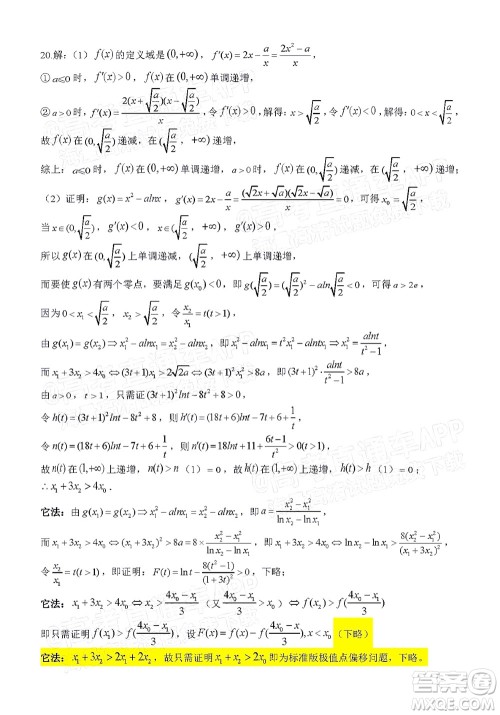 20.解：（1） f(x) 的定义域是 (0,+∞)， f'(x)=2x-a/x=(2x²-a)/x
① a≤0 时， f'(x)>0， f(x) 在 (0,+∞) 单调递增，
② a>0 时， f'(x)=2(x+√(a/2))(x-√(a/2))/x，令 f'(x)>0，解得：x>√(a/2)，令 f'(x)<0，解得：0<x<√(a/2)，
故 f(x) 在 (0,√(a/2)) 递减，在 (√(a/2)，+∞) 递增，
综上：a≤0 时， f(x) 在 (0,+∞) 单调递增；
（2）证明：g(x)=x²-alnx，g'(x)=2x-a/x=(√2x+√a)(√2x-√a)/x=0，可得 x₀=√(a/2)，
当 x∈(0,√(a/2))，g'(x)<0，x∈(√(a/2)，+∞) 时，g'(x)>0，
所以 g(x) 在 (0,√(a/2)) 上单调递减，在 (√(a/2)，+∞) 上单调递增，
而要使 g(x) 有两个零点，要满足 g(x₀)<0，即 g(√(a/2))=(√(a/2))²-aln√(a/2)<0，可得 a>2e，
因为 0<x₁<√(a/2)，x₂>√(a/2)，令 x₂/x₁=t(t>1)，
由 g(x₁)=g(x₂)，即 x₁²-alnx₁=x₂²-alnx₂，即 x₁²-alnx₁=t²x₁²-alntx₁，即 x₁²=alnt/(t²-1)，
而 x₁+3x₂>4x₀⇔(3t+1)x₁>2√2a⇔(3t+1)²x₁²>8a，即 (3t+1)²·alnt/(t²-1)>8a，
由 a>0，t>1，只需证 (3t+1)²lnt-8t²+8>0，
令 h(t)=(3t+1)²lnt-8t²+8，则 h'(t)=(18t+6)lnt-7t+6+1/t，
令 n(t)=(18t+6)lnt-7t+6+1/t，则 n'(t)=18lnt+11+(6t-1)/t²>0(t>1)，
故 n(t) 在 (1,+∞) 上递增，n(t)>n（1）=0，故 h(t) 在 (1,+∞) 上递增，h(t)>h（1）=0；
∴x₁+3x₂>4x₀．
它法：由 g(x₁)=g(x₂)，即 x₁²-alnx₁=x₂²-alnx₂，即 a=(x₂²-x₁²)/(lnx₂-lnx₁)，
而 x₁+3x₂>4x₀⇔(x₁+3x₂)²>8a=8·(x₂²-x₁²)/(lnx₂-lnx₁)⇔lnx₂-lnx₁>8(x₂²-x₁²)/(x₁+3x₂)²
令 x₂/x₁=t(t>1)，即证明：F(t)=lnt-8(t²-1)/(1+3t)²>0，下略；
它法：x₁+3x₂>4x₀⇔x₂>(4x₀-x₁)/3（又(4x₀-x₁)/3>x₀）⇔f(x₂)>f((4x₀-x₁)/3)
即只需证明 f(x₁)>f((4x₀-x₁)/3)，设 F(x)=f(x)-f((4x₀-x)/3),x<x₀（下略）
它法：x₁+3x₂>2x₁+2x₂，故只需证明 x₁+x₂>2x₀ 即为标准版极值点偏移问题，下略。